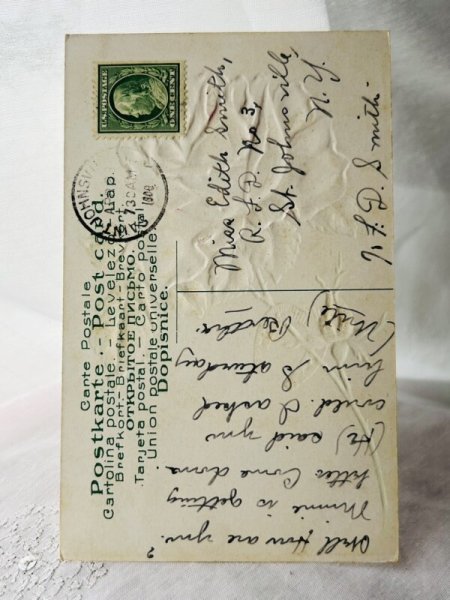 U.S.POSTAGE
ONE CENT
JOHNSVILLE
N.Y.
7 30 AM
1909
Carte Postale
Postkarte - Post card.
Cartolina postale. - Levelező-Lap.
Brefkort.- Briefkaart - Brevkort
ОТКРЫТОЕ ПИСЬМО.
Tarjeta postal - Carto Postal
Union postale universelle
Dopisnice.
Miss Edith Smith,
R. F. D. No 3,
St. Johnsville,
N. Y.
F. D. Smith
Well How are you?
Minnie is getting
better Come down.
(He) said you
could. I asked
him Saturday
(Write) Bertha.